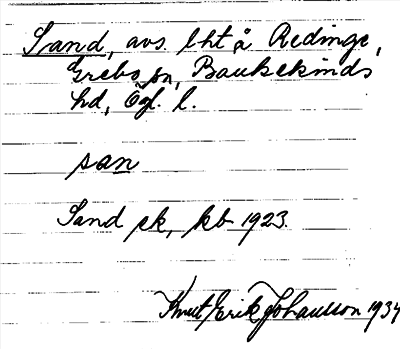 Sand, avs. lht å Redinge,
Grebo sn, Bankekinds
hd, Ögl. l.
san
Sand ck, kb 1923.
Knut Erik Johansson 1934